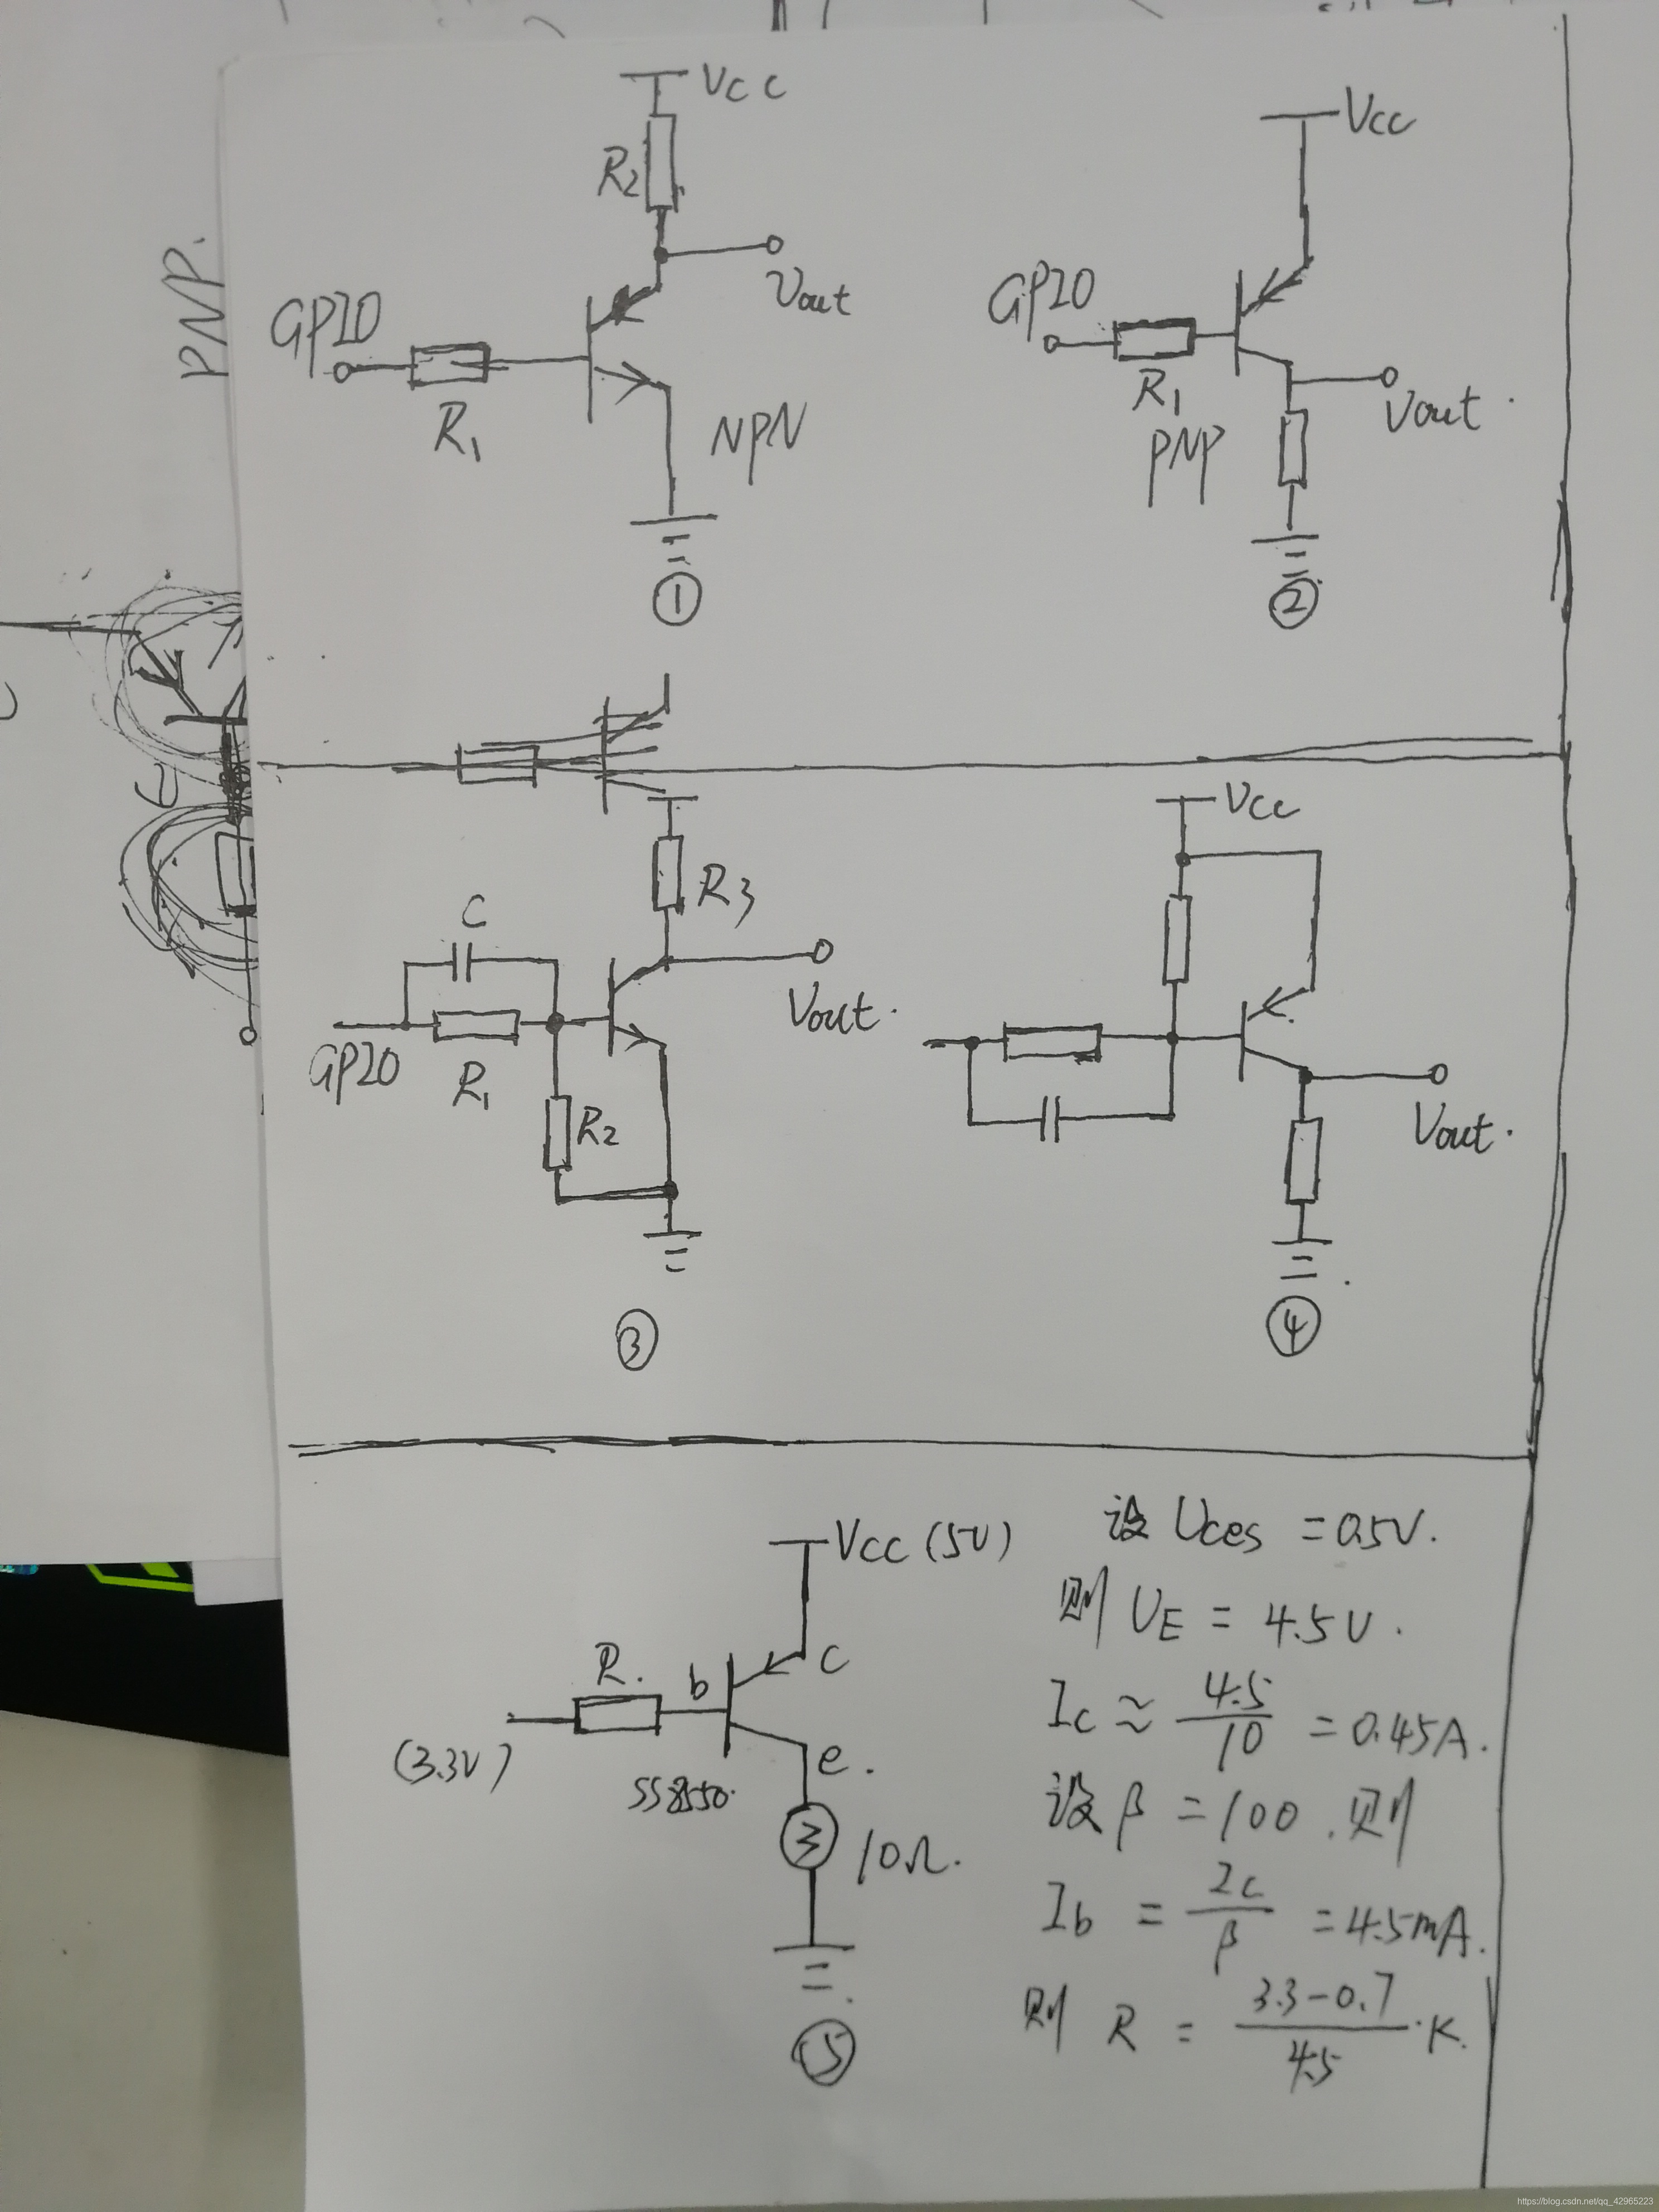 PNP.
Vcc
R2
Vout
GPIO
R1
NPN
①
Vcc
GPIO
R1
PNP
Vout.
②
R3
C
Vout.
GPIO
R1
R2
③
Vcc
Vout.
④
Vcc (5V)
R.
b
c
(3.3V)
SS8550.
e.
10Ω.
⑤
设 Uces = 0.5V.
则 UE = 4.5V.
Ic ≈ 4.5/10 = 0.45A.
设 β = 100. 则
Ib = Ic/β = 4.5mA.
则 R = 3.3-0.7/4.5 ·K.
https://blog.csdn.net/qq_42965223